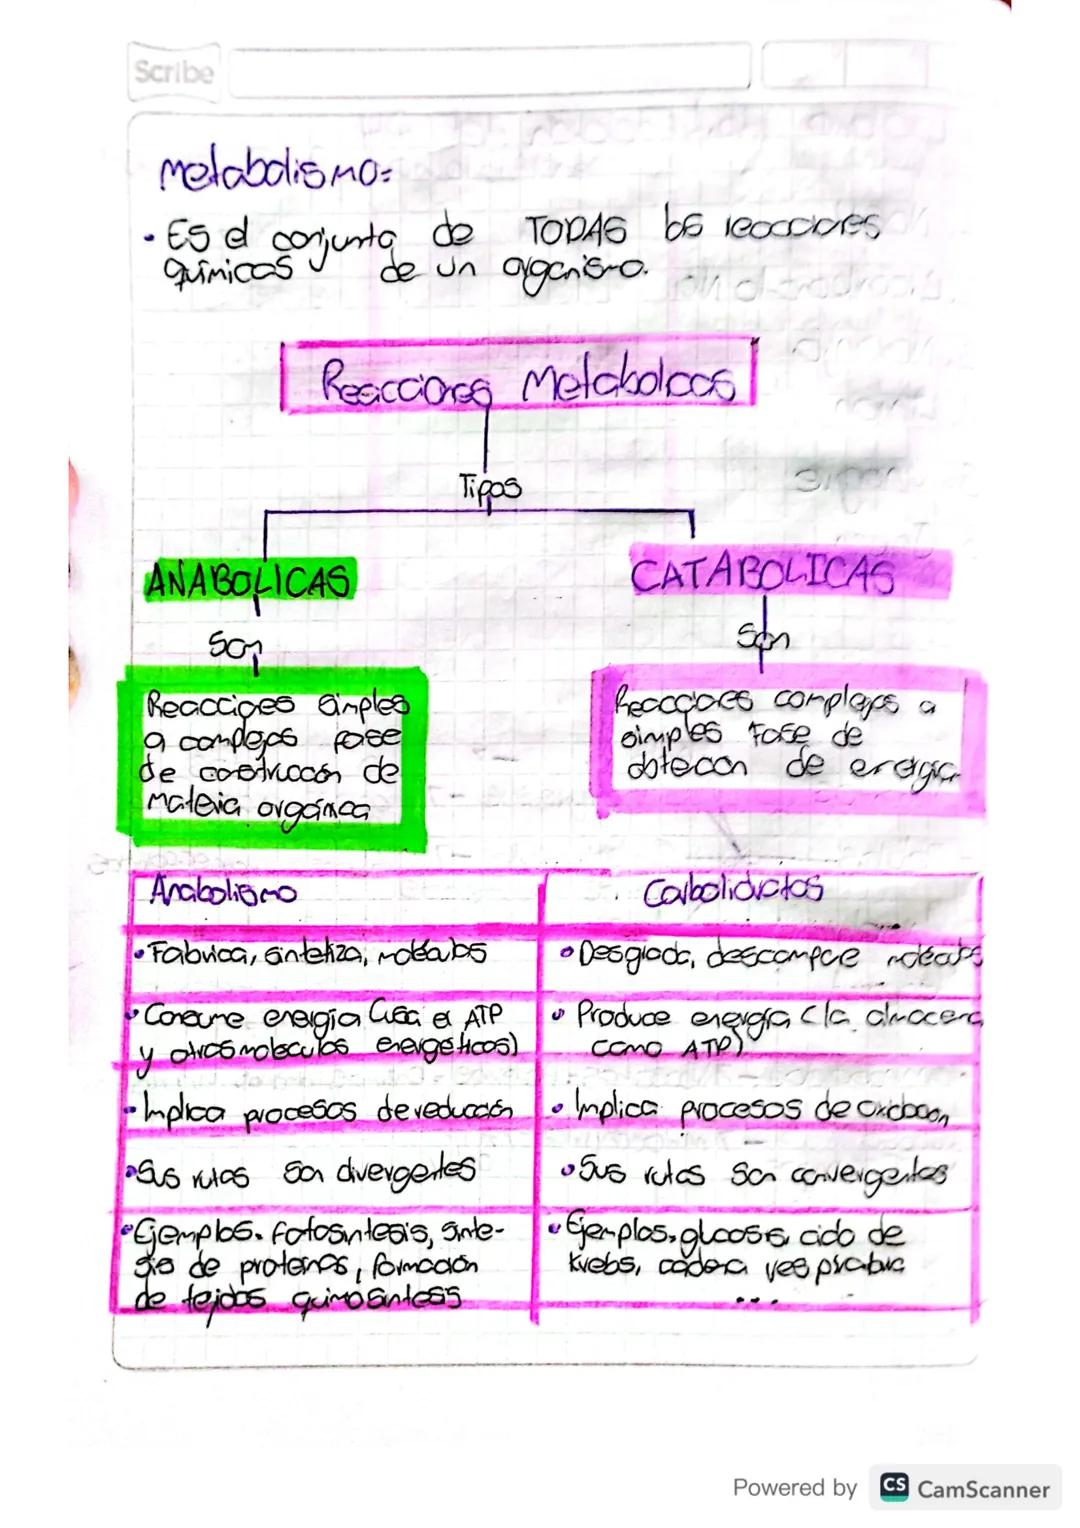 Scribe
Metabolismo:
• Es el conjunto de TODAS las reacciones
químicas de un organismo.
Reacciones Metabolicas
Tipos
ANABOLICAS
CATABOLICAS
Son
Son
Reacciones simples
a complejas fase
de construccion de
materia organica
Reacciones complejas a
simples fase de
obtecion de energia
Anabolismo
Carbolidratos
• Fabrica, sintetiza, moléculas
• Desgrada, descompone moléculas
• Consume energía (usa el ATP
y otras moleculas energéticas)
• Produce energía (la almacena
como ATP)
• Implica procesos de reducción
• Implica procesos de oxidacion
• Sus rutas son divergentes
• Sus rutas son convergentes
• Ejemplos. fotosintesis, sinte-
sis de proteinas, formación
de tejidos quimosintesis
• Ejemplos. ciclo de
krebs, cadena
...
Powered by CS CamScanner